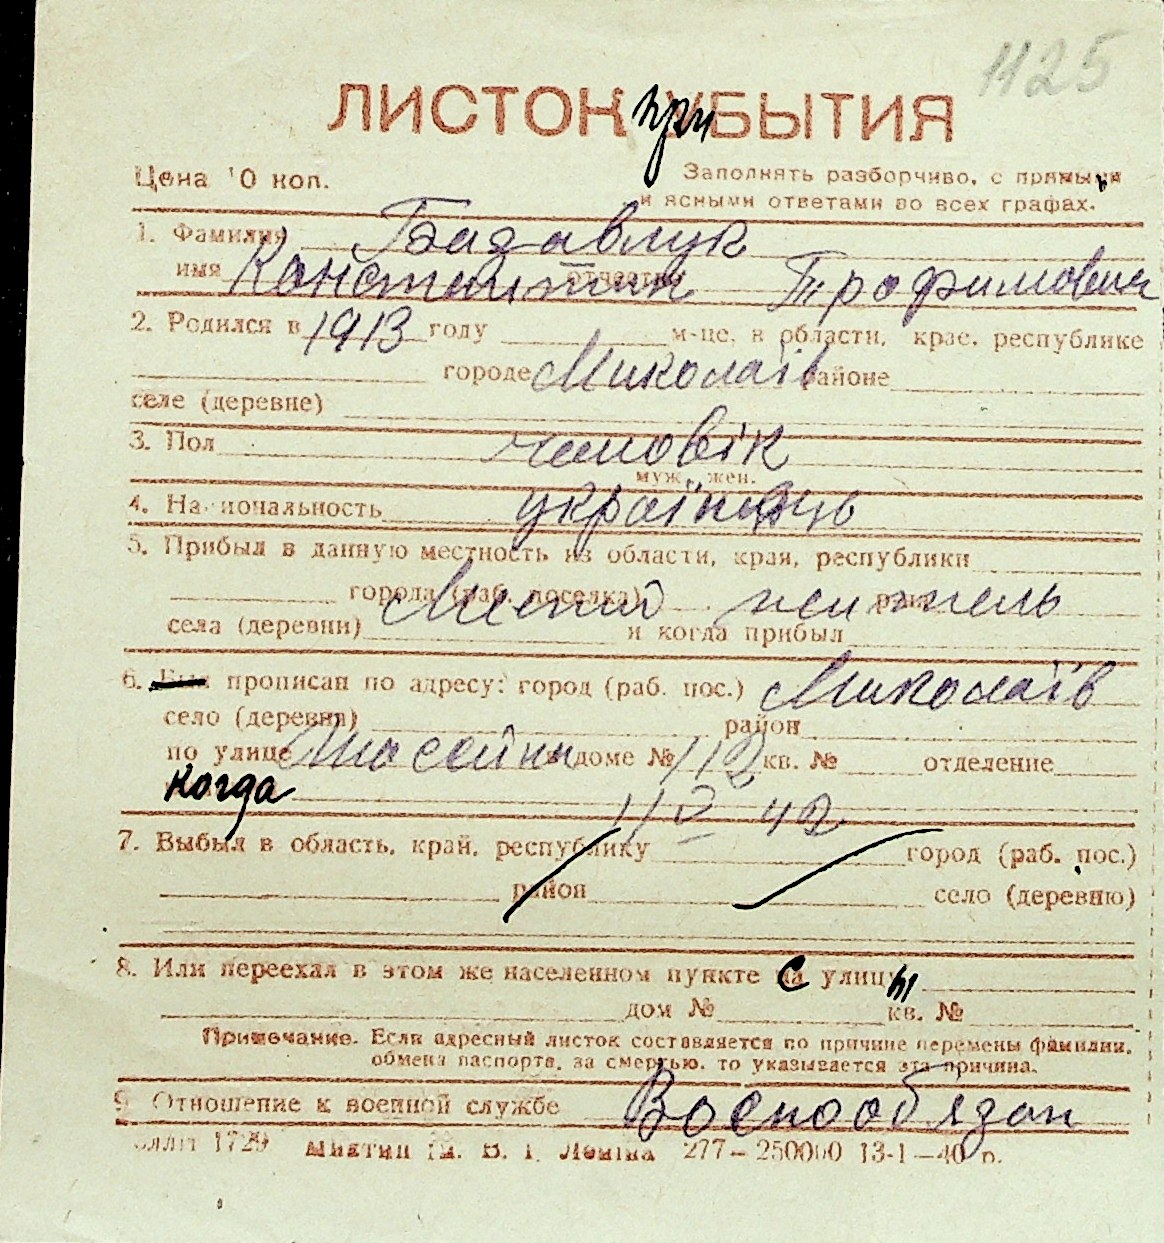 1125
ЛИСТОК прибытия
Цена 10 коп.
Заполнять разборчиво, с прямыми
и ясными ответами во всех графах.
1. Фамилия
имя Константин отчество Трофимович
2. Родился в 1913 году м-це, в области, крае, республике
городе Миколаїв районе
селе (деревне)
3. Пол чоловік
муж. жен.
4. Национальность українець
5. Прибыл в данную местность из области, края, республики
города (раб. поселка) Местний житель
села (деревни) и когда прибыл
6. Был прописан по адресу: город (раб. пос.) Миколаїв
село (деревня) район
по улице доме № 112 кв. № отделение
когда 1/IV 42
7. Выбыл в область, край, республику город (раб. пос.)
район село (деревню)
8. Или переехал в этом же населенном пункте с улицы
дом № кв. №
Примечание. Если адресный листок составляется по причине перемены фамилии,
обмена паспорта, за смертью, то указывается эта причина.
9. Отношение к военной службе Военообязан
1729 277—250000 13-1—40 р.